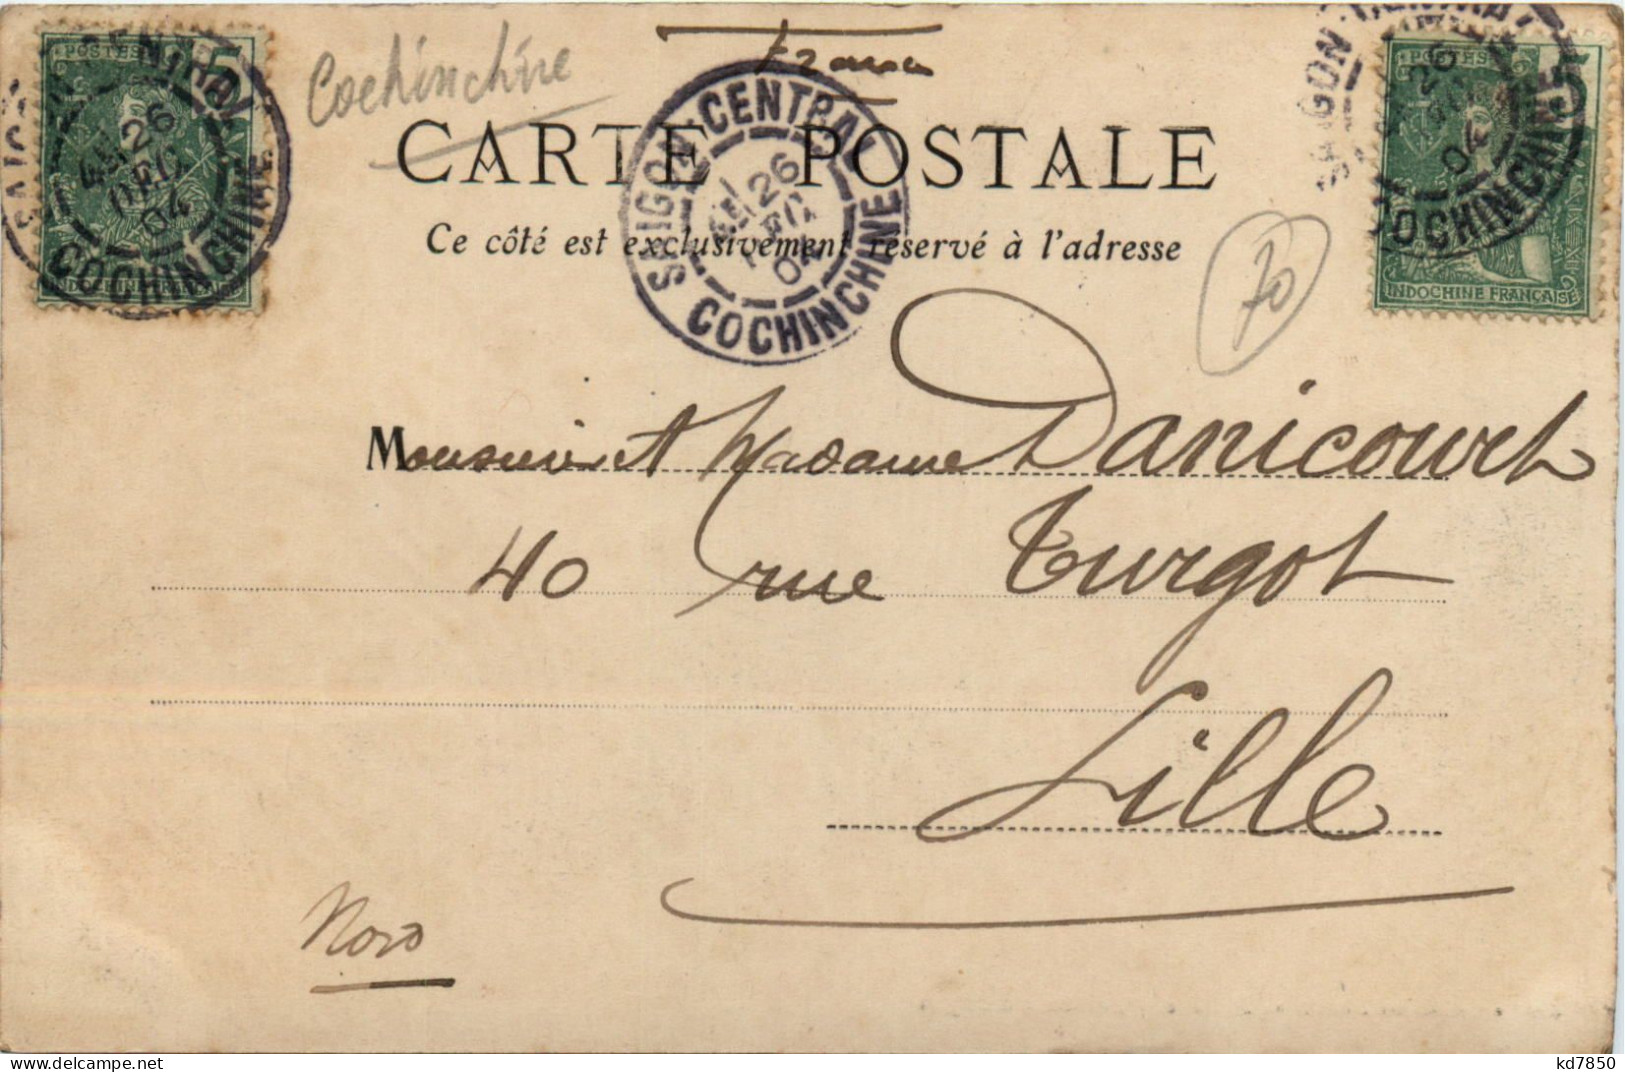 POSTES 5
SAIGON CENTRAL
4E 26
DEC
04
COCHINCHINE
INDOCHINE FRANÇAISE
Cochinchine
France
CARTE POSTALE
SAIGON-CENTRAL
26
DEC
04
COCHINCHINE
Ce côté est exclusivement réservé à l'adresse
70
SAIGON CENTRAL
POSTES 5
26
04
COCHINCHINE
INDOCHINE FRANÇAISE
Monsieur et Madame Danicourt
40 rue Turgot
Lille
Nord
delcampe.net
kd7850